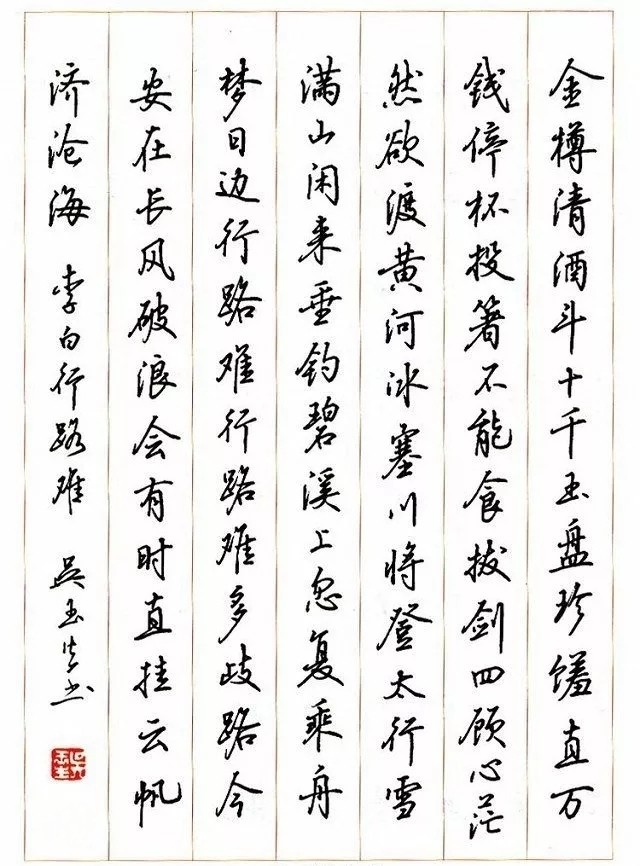 金樽清酒斗十千玉盘珍馐直万
钱停杯投箸不能食拔剑四顾心茫
然欲渡黄河冰塞川将登太行雪
满山闲来垂钓碧溪上忽复乘舟
梦日边行路难行路难多歧路今
安在长风破浪会有时直挂云帆
济沧海 李白行路难 吴玉生书
吴玉生